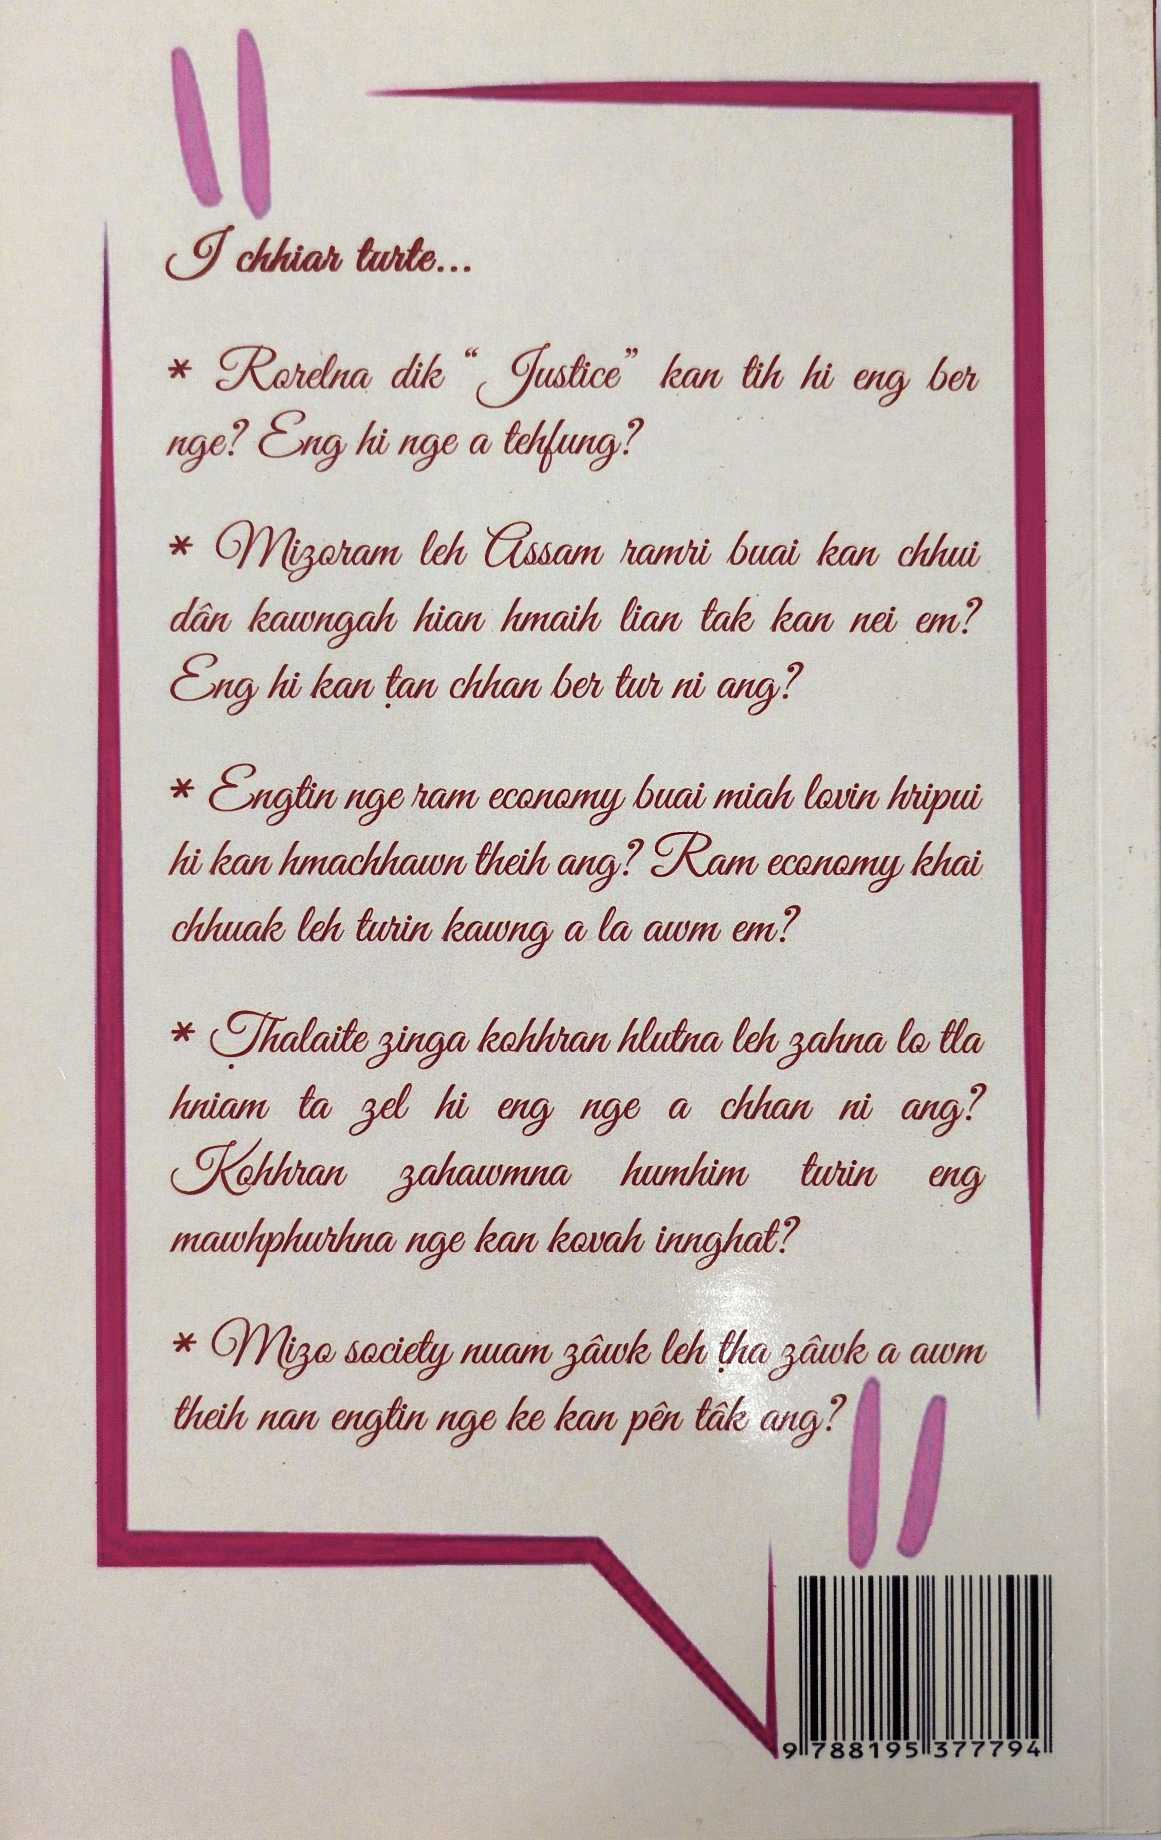 I chhiar turte...
* Rorelna dik “Justice” kan tih hi eng ber
nge? Eng hi nge a tehfung?
* Mizoram leh Assam ramri buai kan chhui
dân kawngah hian hmaih lian tak kan nei em?
Eng hi kan ṭan chhan ber tur ni ang?
* Engtin nge ram economy buai miah lovin hripui
hi kan hmachhawn theih ang? Ram economy khai
chhuak leh turin kawng a la awm em?
* Ṭhalaite zinga kohhran hlutna leh zahna lo tla
hniam ta zel hi eng nge a chhan ni ang?
Kohhran zahawmna humhim turin eng
mawhphurhna nge kan kovah innghat?
* Mizo society nuam zâwk leh ṭha zâwk a awm
theih nan engtin nge ke kan pên tâk ang?
9 788195 377794